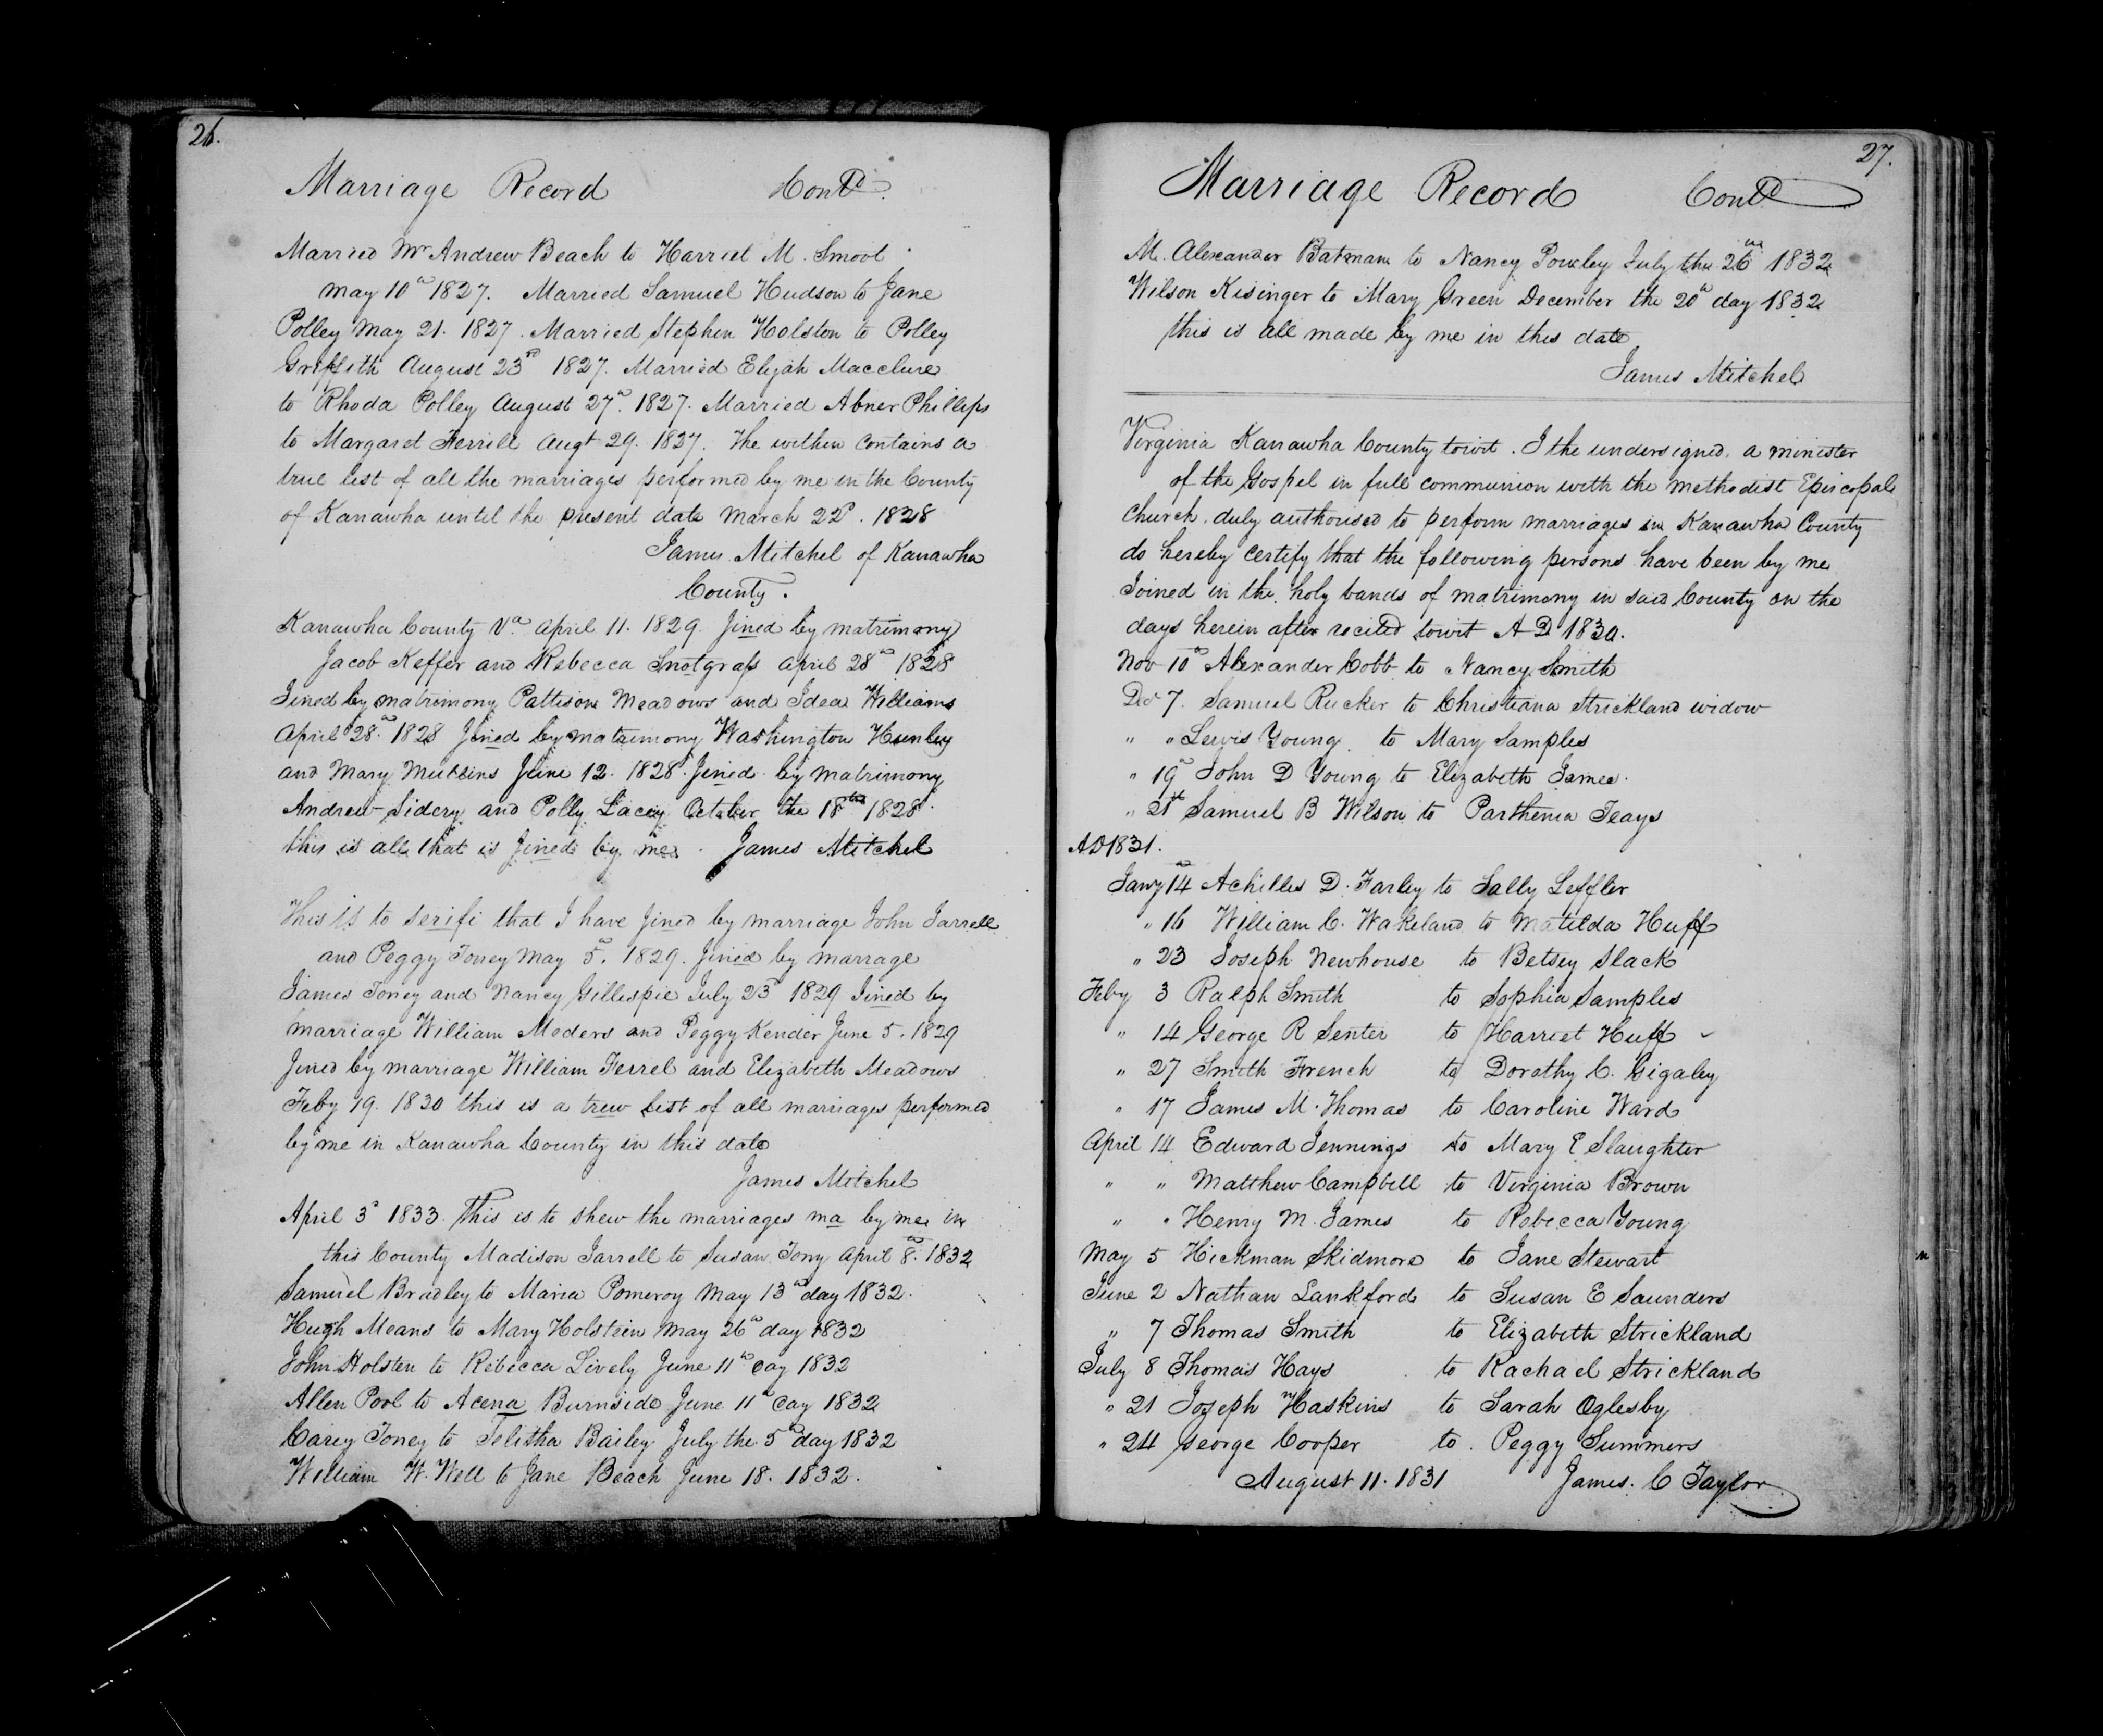 26.
Marriage Record Contd.
Married Mr Andrew Beach to Harriet M. Smoot
May 10th 1827. Married Samuel Hudson to Jane
Polley May 21. 1827. Married Stephen Holston to Polley
Griffith August 23rd 1827. Married Elijah Macclure
to Rhoda Polley August 27th. 1827. Married Abner Phillips
to Margaret Ferrill Augt 29. 1827. The within contains a
true list of all the marriages performed by me in the County
of Kanawha until the present date March 22d. 1828
James Mitchel of Kanawha
County.
Kanawha County Va April 11. 1829. Jined by matrimony
Jacob Keffer and Rebecca Snotgrass April 28th 1828
Jined by matrimony Pattison Meadows and Idea Williams
April 28th 1828 Jined by matrimony Washington Hunley
and Mary Mullins June 12. 1828. Jined by matrimony
Andrew Sidery and Polly Lacey October the 18th 1828.
this is all that is Jined by me. James Mitchel
This is to serifi that I have Jined by marriage John Jarrell
and Peggy Toney May 5th. 1829. Jined by marrage
James Toney and Nancy Gillespie July 23d 1829 Jined by
marriage William Meders and Peggy Kender June 5. 1829
Jined by marriage William Ferrel and Elizabeth Meadows
Feby 19. 1830 this is a trew list of all marriages performed
by me in Kanawha County in this date
James Mitchel
April 3d 1833. This is to shew the marriages ma by me in
this County Madison Jarrell to Susan Tony April 8th. 1832
Samuel Bradley to Maria Pomeroy May 13th day 1832.
Hugh Means to Mary Holstein May 26th day 1832
John Holsten to Rebecca Lively June 11th day 1832
Allen Pool to Acena Burnside June 11th day 1832
Carey Toney to Telitha Bailey July the 5th day 1832
William W. Well to Jane Beach June 18. 1832.
27.
Marriage Record Contd
M. Alexander Batman to Nancy Pouley July the 26th 1832
Wilson Kisinger to Mary Green December the 20th day 1832
this is all made by me in this date
James Mitchel
Virginia Kanawha County towit. I the undersigned, a minister
of the Gospel in full communion with the Methodist Episcopal
Church, duly authorised to perform marriages in Kanawha County
do hereby certify that the following persons have been by me
Joined in the holy bands of matrimony in said County on the
days herein after recited towit A D 1830.
Nov 10th Alexander Cobb to Nancy Smith
Dec 7. Samuel Rucker to Christiana Strickland widow
" " Lewis Young to Mary Samples
" 19th John D Young to Elizabeth James.
" 21st Samuel B Wilson to Parthenia Teays
AD 1831.
Jany 14th Achilles D. Farley to Sally Leffler
" 16 William C. Wakeland to Matilda Huff
" 23 Joseph Newhouse to Betsey Slack
Feby 3 Ralph Smith to Sophia Samples
" 14 George R Senter to Harriet Huff
" 27 Smith French to Dorothy C. Gigaley
" 17 James M. Thomas to Caroline Ward
April 14 Edward Jennings to Mary E Slaughter
" " Matthew Campbell to Virginia Brown
" " Henry M. James to Rebecca Young
May 5 Hickman Skidmore to Jane Stewart
June 2 Nathan Lankford to Susan E Saunders
" 7 Thomas Smith to Elizabeth Strickland
July 8 Thomas Hays to Rachael Strickland
" 21 Joseph Haskins to Sarah Oglesby
" 24 George Cooper to Peggy Summers
August 11. 1831 James. C Taylor